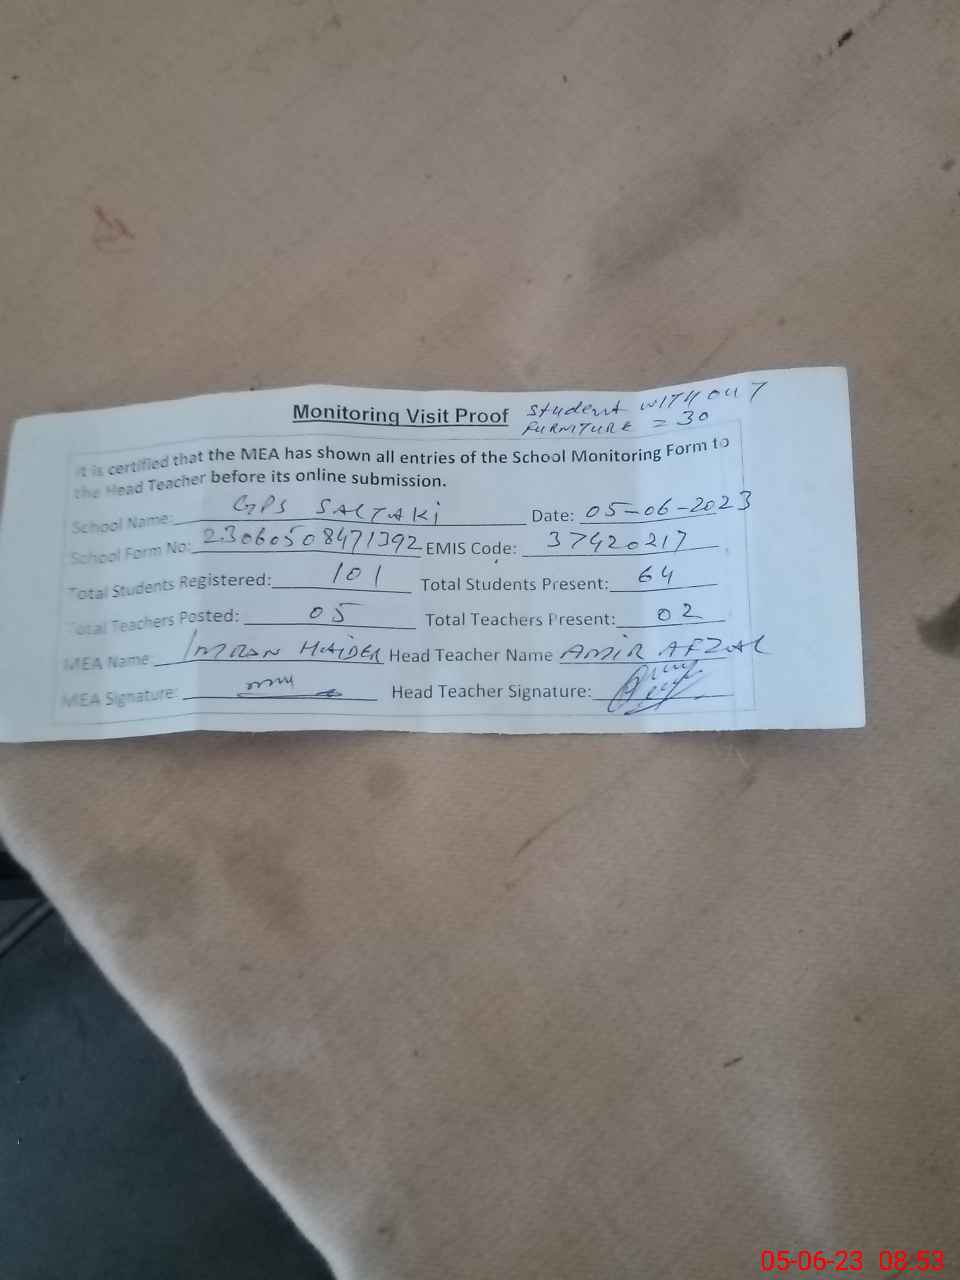 Monitoring Visit Proof student WITHOUT
FURNITURE = 30
It is certified that the MEA has shown all entries of the School Monitoring Form to
the Head Teacher before its online submission.
School Name: GPS SALTAKi Date: 05-06-2023
School Form No: 23060508471392 EMIS Code: 37420217
Total Students Registered: 101 Total Students Present: 64
Total Teachers Posted: 05 Total Teachers Present: 02
MEA Name: IMRAN HAIDER Head Teacher Name AMiR AFZAL
MEA Signature: Head Teacher Signature:
05-06-23 08:53